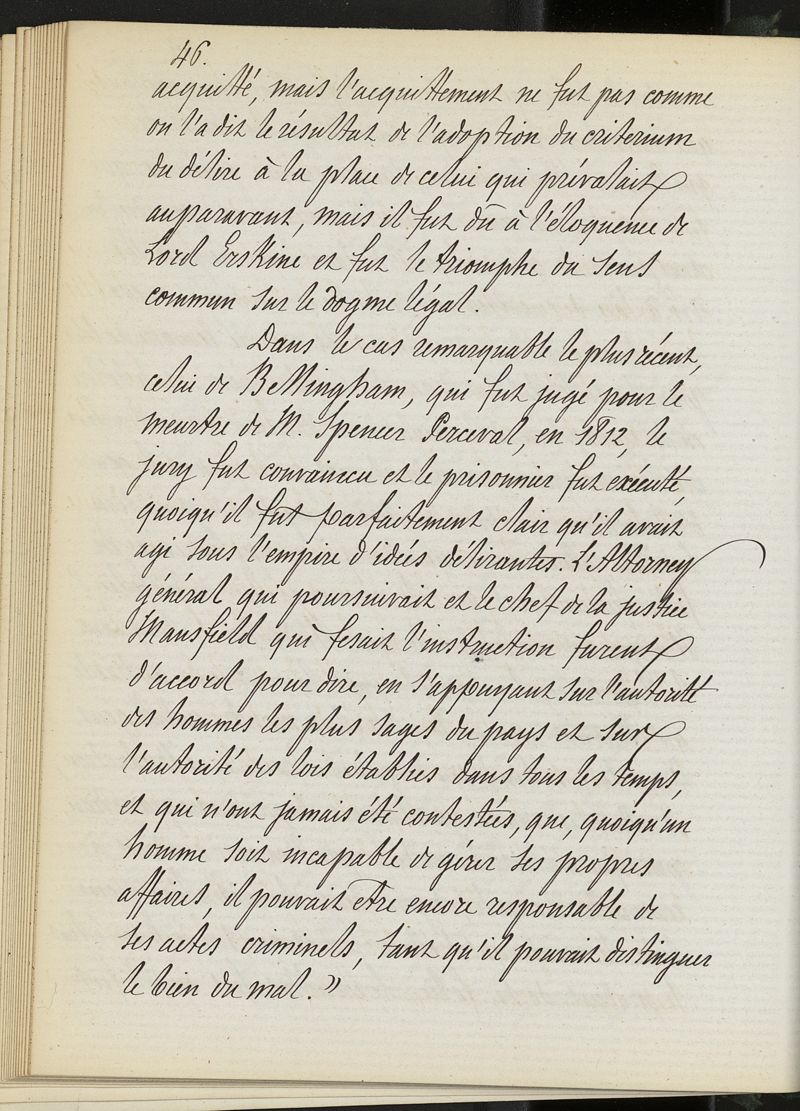 46.
acquitté, mais l'acquittement ne fut pas comme
on l'a dit le résultat de l'adoption du criterium
du délire à la place de celui qui prévalait
auparavant, mais il fut dû à l'éloquence de
Lord Erskine et fut le triomphe du sens
commun sur le dogme légal.
Dans le cas remarquable le plus récent,
celui de Bellingham, qui fut jugé pour le
meurtre de M. Spencer Perceval, en 1812, le
jury fut convaincu et le prisonnier fut exécuté,
quoiqu'il fut parfaitement clair qu'il avait
agi sous l'empire d'idées délirantes. L'Attorney
général qui poursuivait et le chef de la justice
Mansfield qui fesait l'instruction furent
d'accord pour dire, en s'appuyant sur l'autorité
des hommes les plus sages du pays et sur
l'autorité des lois établies dans tous les temps,
et qui n'ont jamais été contestées, que, quoiqu'un
homme soit incapable de gérer ses propres
affaires, il pouvait être encore responsable de
ses actes criminels, tant qu'il pouvait distinguer
le bien du mal. »